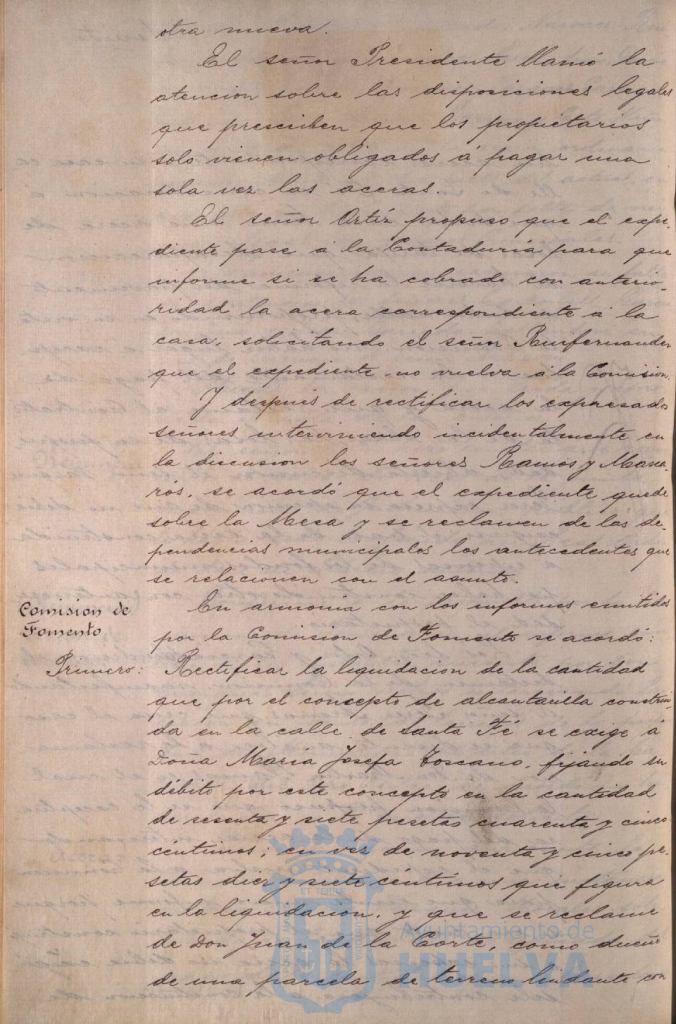 otra nueva.
El señor Presidente llamó la
atencion sobre las disposiciones legales
que prescriben que los propietarios
solo vienen obligados á pagar una
sola vez las aceras.
El señor Ortíz propuso que el expe-
diente pase á la Contaduría para que
informe si se ha cobrado con anterio-
ridad la acera correspondiente á la
casa, solicitando el señor Ruifernandez
que el expediente no vuelva á la Comision.
Y después de rectificar los expresados
señores interviniendo incidentalmente en
la discusion los señores Ramos y
se acordó que el expediente quede
sobre la Mesa y se reclamen de las de-
pendencias municipales los antecedentes que
se relacionen con el asunto.
Comision de
Fomento
En armonia con los informes emitidos
por la Comision de Fomento se acordó:
Primero: Rectificar la liquidacion de la cantidad
que por el concepto de alcantarilla construi-
da en la calle de Santa Fé se exige á
Doña María Josefa Toscano, fijando su
débito por este concepto en la cantidad
de sesenta y siete pesetas cuarenta y cinco
céntimos; en vez de noventa y cinco pe-
setas diez y siete céntimos que figura
en la liquidacion, y que se reclame
de Don Juan de la Corte, como dueño
de una parcela de terreno lindante con
Ayuntamiento de
HUELVA